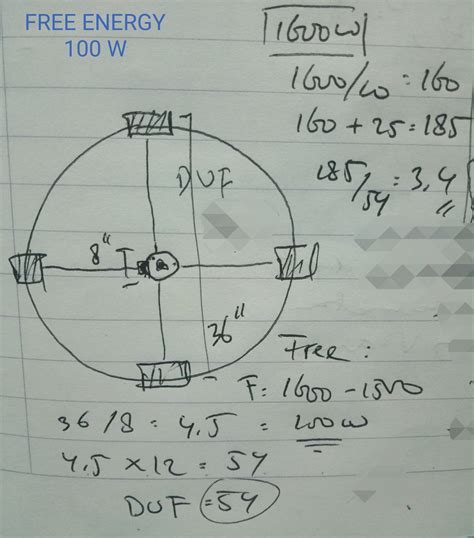 FREE ENERGY
100 W
1600W
1600/10 = 160
160 + 25 = 185
185/54 = 3,4
DUF
8"
36"
Free :
F: 1600 - 1500
36 / 8 = 4.5 = 100W
4.5 × 12 = 54
DUF = 54